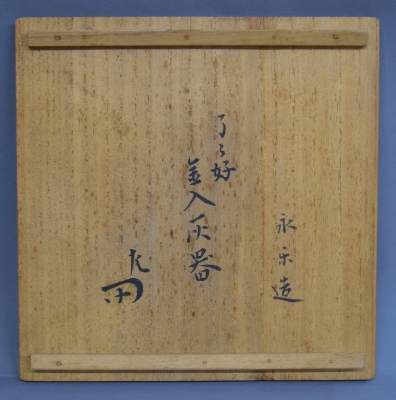 永楽造
了々好
金入灰器
左